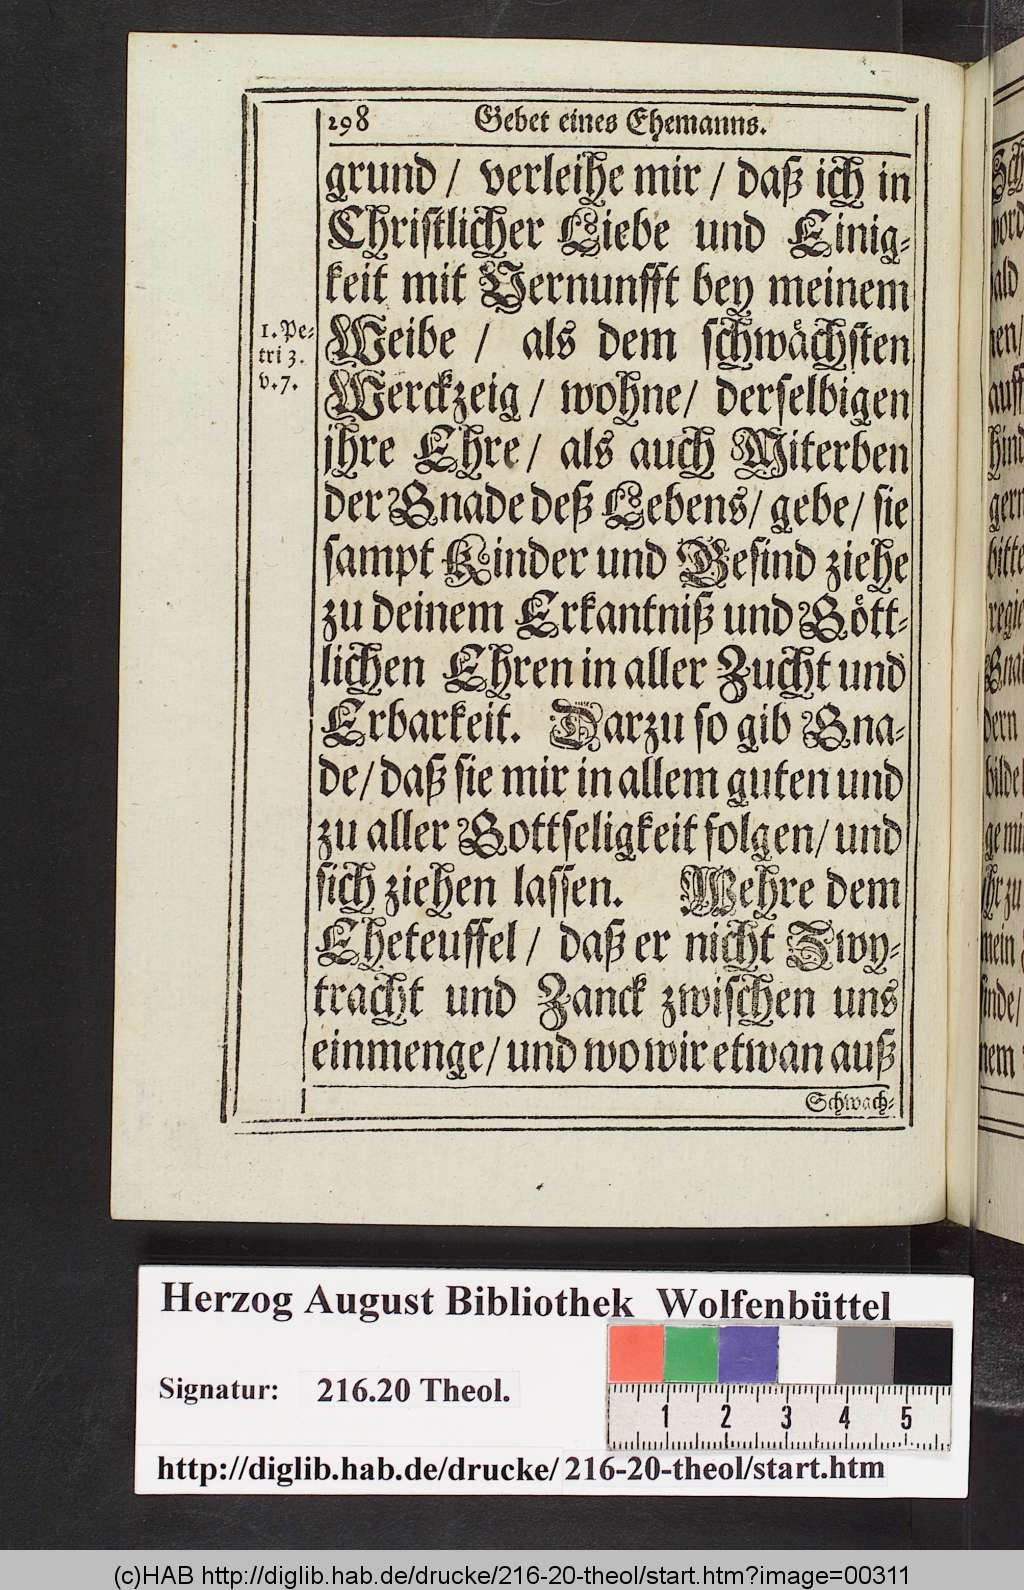 298 Gebet eines Ehemanns.
grund / verleihe mir / daß ich in
Christlicher Liebe und Einig-
keit mit Vernunfft bey meinem
1. Pe-
tri 3.
v. 7.
Weibe / als dem schwächsten
Werckzeig / wohne / derselbigen
jhre Ehre / als auch Miterben
der Gnade deß Lebens / gebe / sie
sampt Kinder und Gesind ziehe
zu deinem Erkantniß und Gött-
lichen Ehren in aller Zucht und
Erbarkeit. Darzu so gib Gna-
de / daß sie mir in allem guten und
zu aller Gottseligkeit folgen / und
sich ziehen lassen. Wehre dem
Eheteuffel / daß er nicht Zwy-
tracht und Zanck zwischen uns
einmenge / und wo wir etwan auß
Schwach-
Herzog August Bibliothek Wolfenbüttel
Signatur: 216.20 Theol.
1 2 3 4 5
http://diglib.hab.de/drucke/216-20-theol/start.htm
(c)HAB http://diglib.hab.de/drucke/216-20-theol/start.htm?image=00311